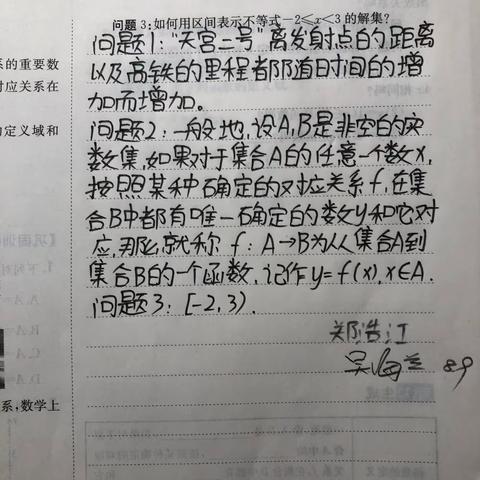 问题3:如何用区间表示不等式-2≤x<3的解集?
系的重要数
对应关系在
的定义域和
系,数学上
问题1:“天宫二号”离发射点的距离
以及高铁的里程都随着时间的增
加而增加。
问题2:一般地,设A,B是非空的实
数集,如果对于集合A的任意一个数x,
按照某种确定的对应关系f,在集
合B中都有唯一确定的数y和它对
应,那么就称f:A→B为从集合A到
集合B的一个函数,记作y=f(x),x∈A.
问题3:[-2,3).
郑浩江
89